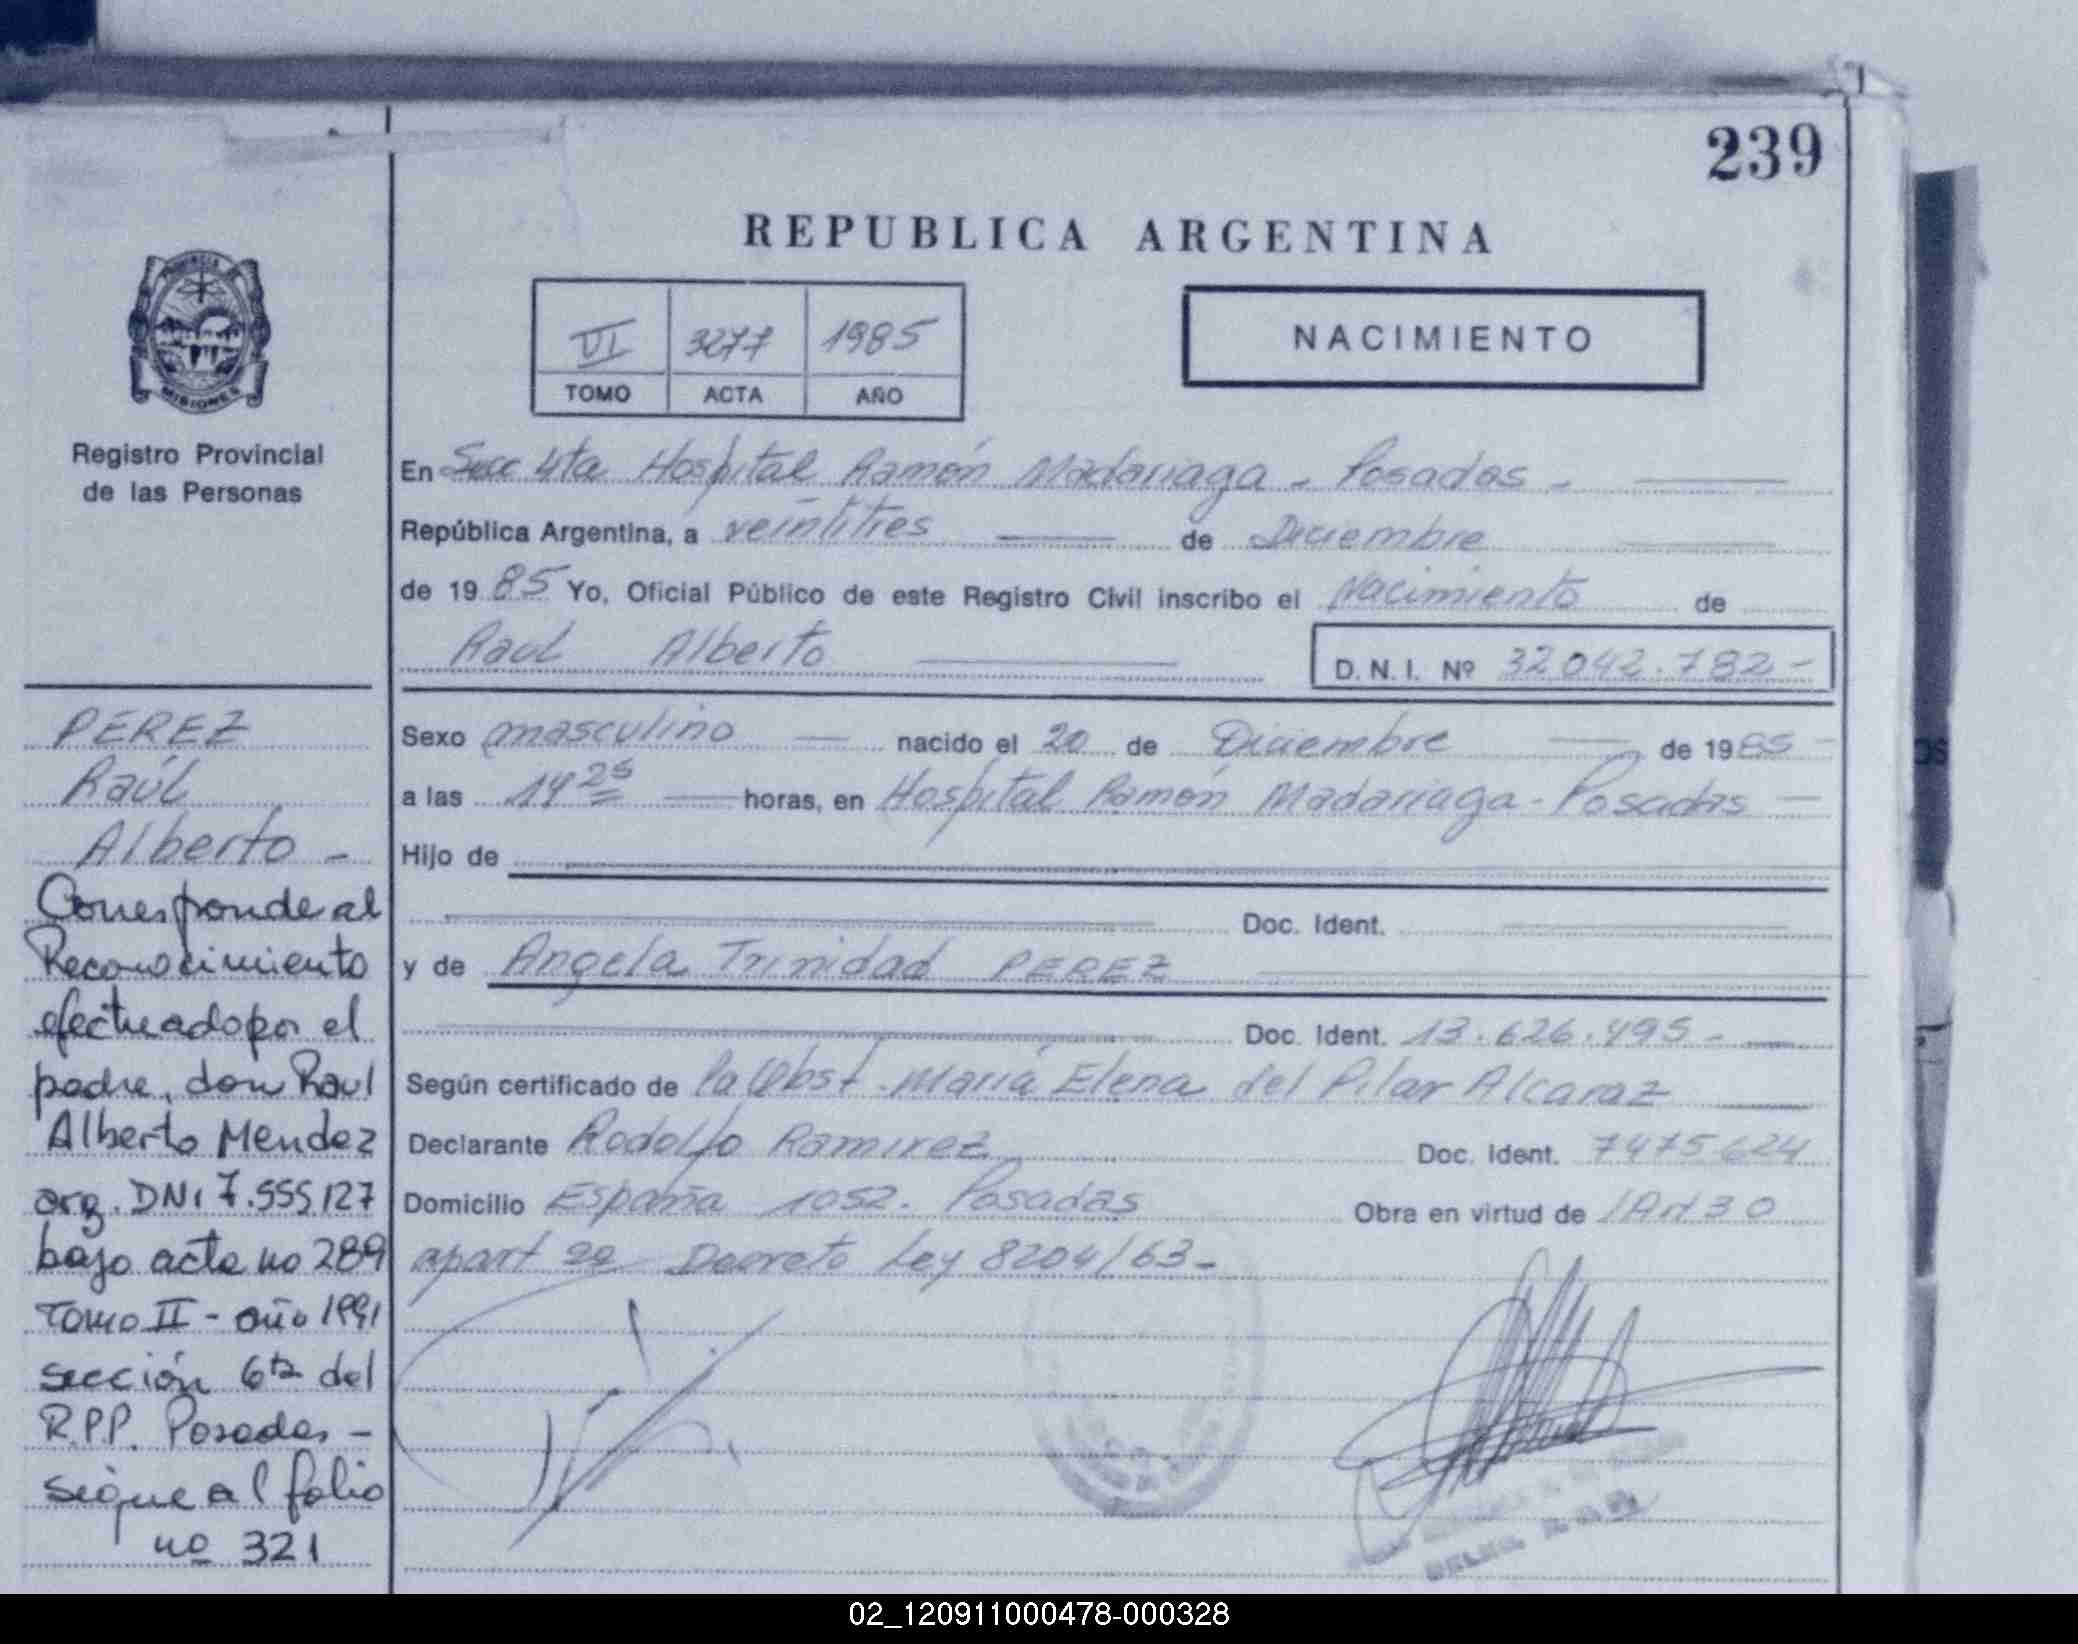 239
REPUBLICA ARGENTINA
PROVINCIA DE
MISIONES
Registro Provincial
de las Personas
VI 3277 1985
TOMO ACTA AÑO
NACIMIENTO
En Secc 4ta Hospital Ramón Madariaga - Posadas -
República Argentina, a veintitres de Diciembre
de 19 85 Yo, Oficial Público de este Registro Civil inscribo el Nacimiento de
Raul Alberto
D. N. I. Nº 32042.782-
PEREZ
Raúl
Alberto -
Corresponde al
Reconocimiento
efectuado por el
padre, don Raul
Alberto Mendez
arg. DNI 7.555127
bajo acta no 289
Tomo II - año 1991
sección 6ta del
R.P.P. Posadas -
sigue al folio
nº 321
Sexo masculino nacido el 20 de Diciembre de 1985
a las 14 25 horas, en Hospital Ramón Madariaga - Posadas
Hijo de
Doc. Ident.
y de Angela Trinidad PEREZ
Doc. Ident. 13.626.495-
Según certificado de la Obst. María Elena del Pilar Alcaraz
Declarante Rodolfo Ramirez Doc. Ident. 7475624
Domicilio España 1052. Posadas Obra en virtud de /Art 30
apart 2º Decreto Ley 8204/63-
02_120911000478-000328